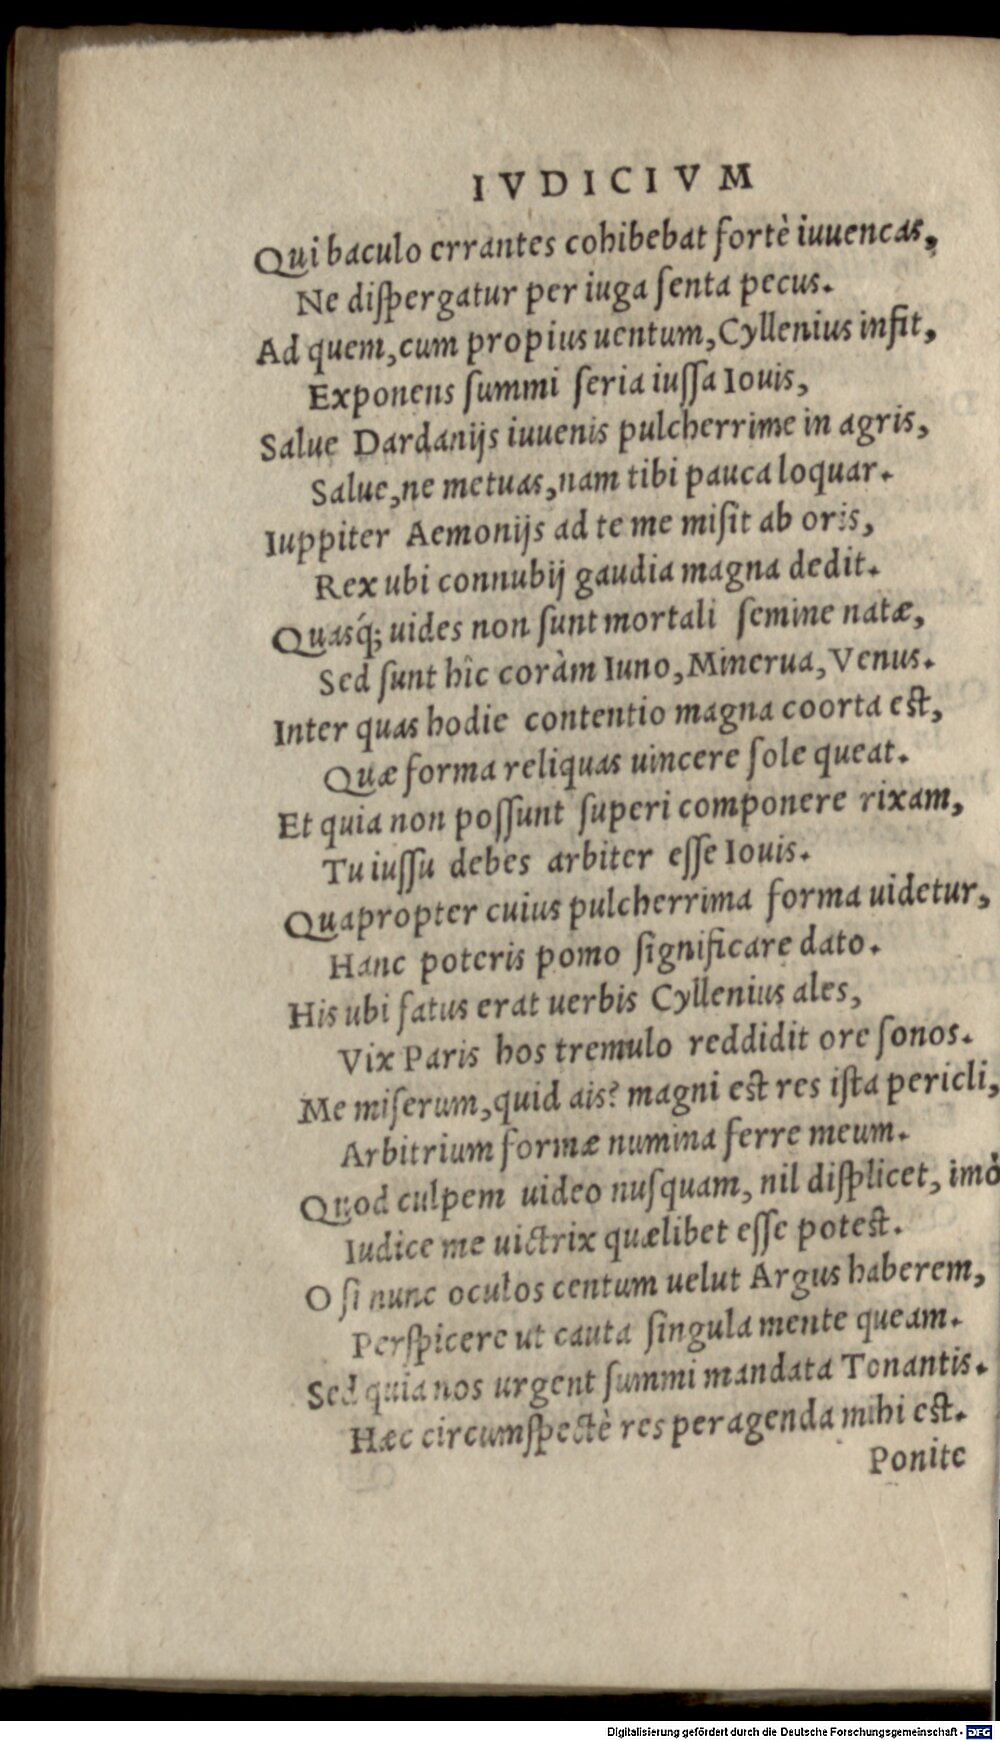 IVDICIVM
Qui baculo errantes cohibebat fortè iuuencas,
Ne diſpergatur per iuga ſenta pecus.
Ad quem, cum propius uentum, Cyllenius inſit,
Exponens ſummi ſeria iuſſa Iouis,
Salue Dardanijs iuuenis pulcherrime in agris,
Salue, ne metuas, nam tibi pauca loquar.
Iuppiter Aemonijs ad te me miſit ab oris,
Rex ubi connubij gaudia magna dedit.
Quasq́; uides non ſunt mortali ſemine natæ,
Sed ſunt hîc coràm Iuno, Minerua, Venus.
Inter quas hodie contentio magna coorta eſt,
Quæ forma reliquas uincere ſole queat.
Et quia non poſſunt ſuperi componere rixam,
Tu iuſſu debes arbiter eſſe Iouis.
Quapropter cuius pulcherrima forma uidetur,
Hanc poteris pomo ſignificare dato.
His ubi fatus erat uerbis Cyllenius ales,
Vix Paris hos tremulo reddidit ore ſonos.
Me miſerum, quid ais? magni eſt res iſta pericli,
Arbitrium formæ numina ferre meum.
Quod culpem uideo nuſquam, nil diſplicet, imò
Iudice me uictrix quælibet eſſe poteſt.
O ſi nunc oculos centum uelut Argus haberem,
Perſpicere ut cauta ſingula mente queam.
Sed quia nos urgent ſummi mandata Tonantis.
Hæc circumſpectè res peragenda mihi eſt.
Ponite
Digitalisierung gefördert durch die Deutsche Forschungsgemeinschaft - DFG